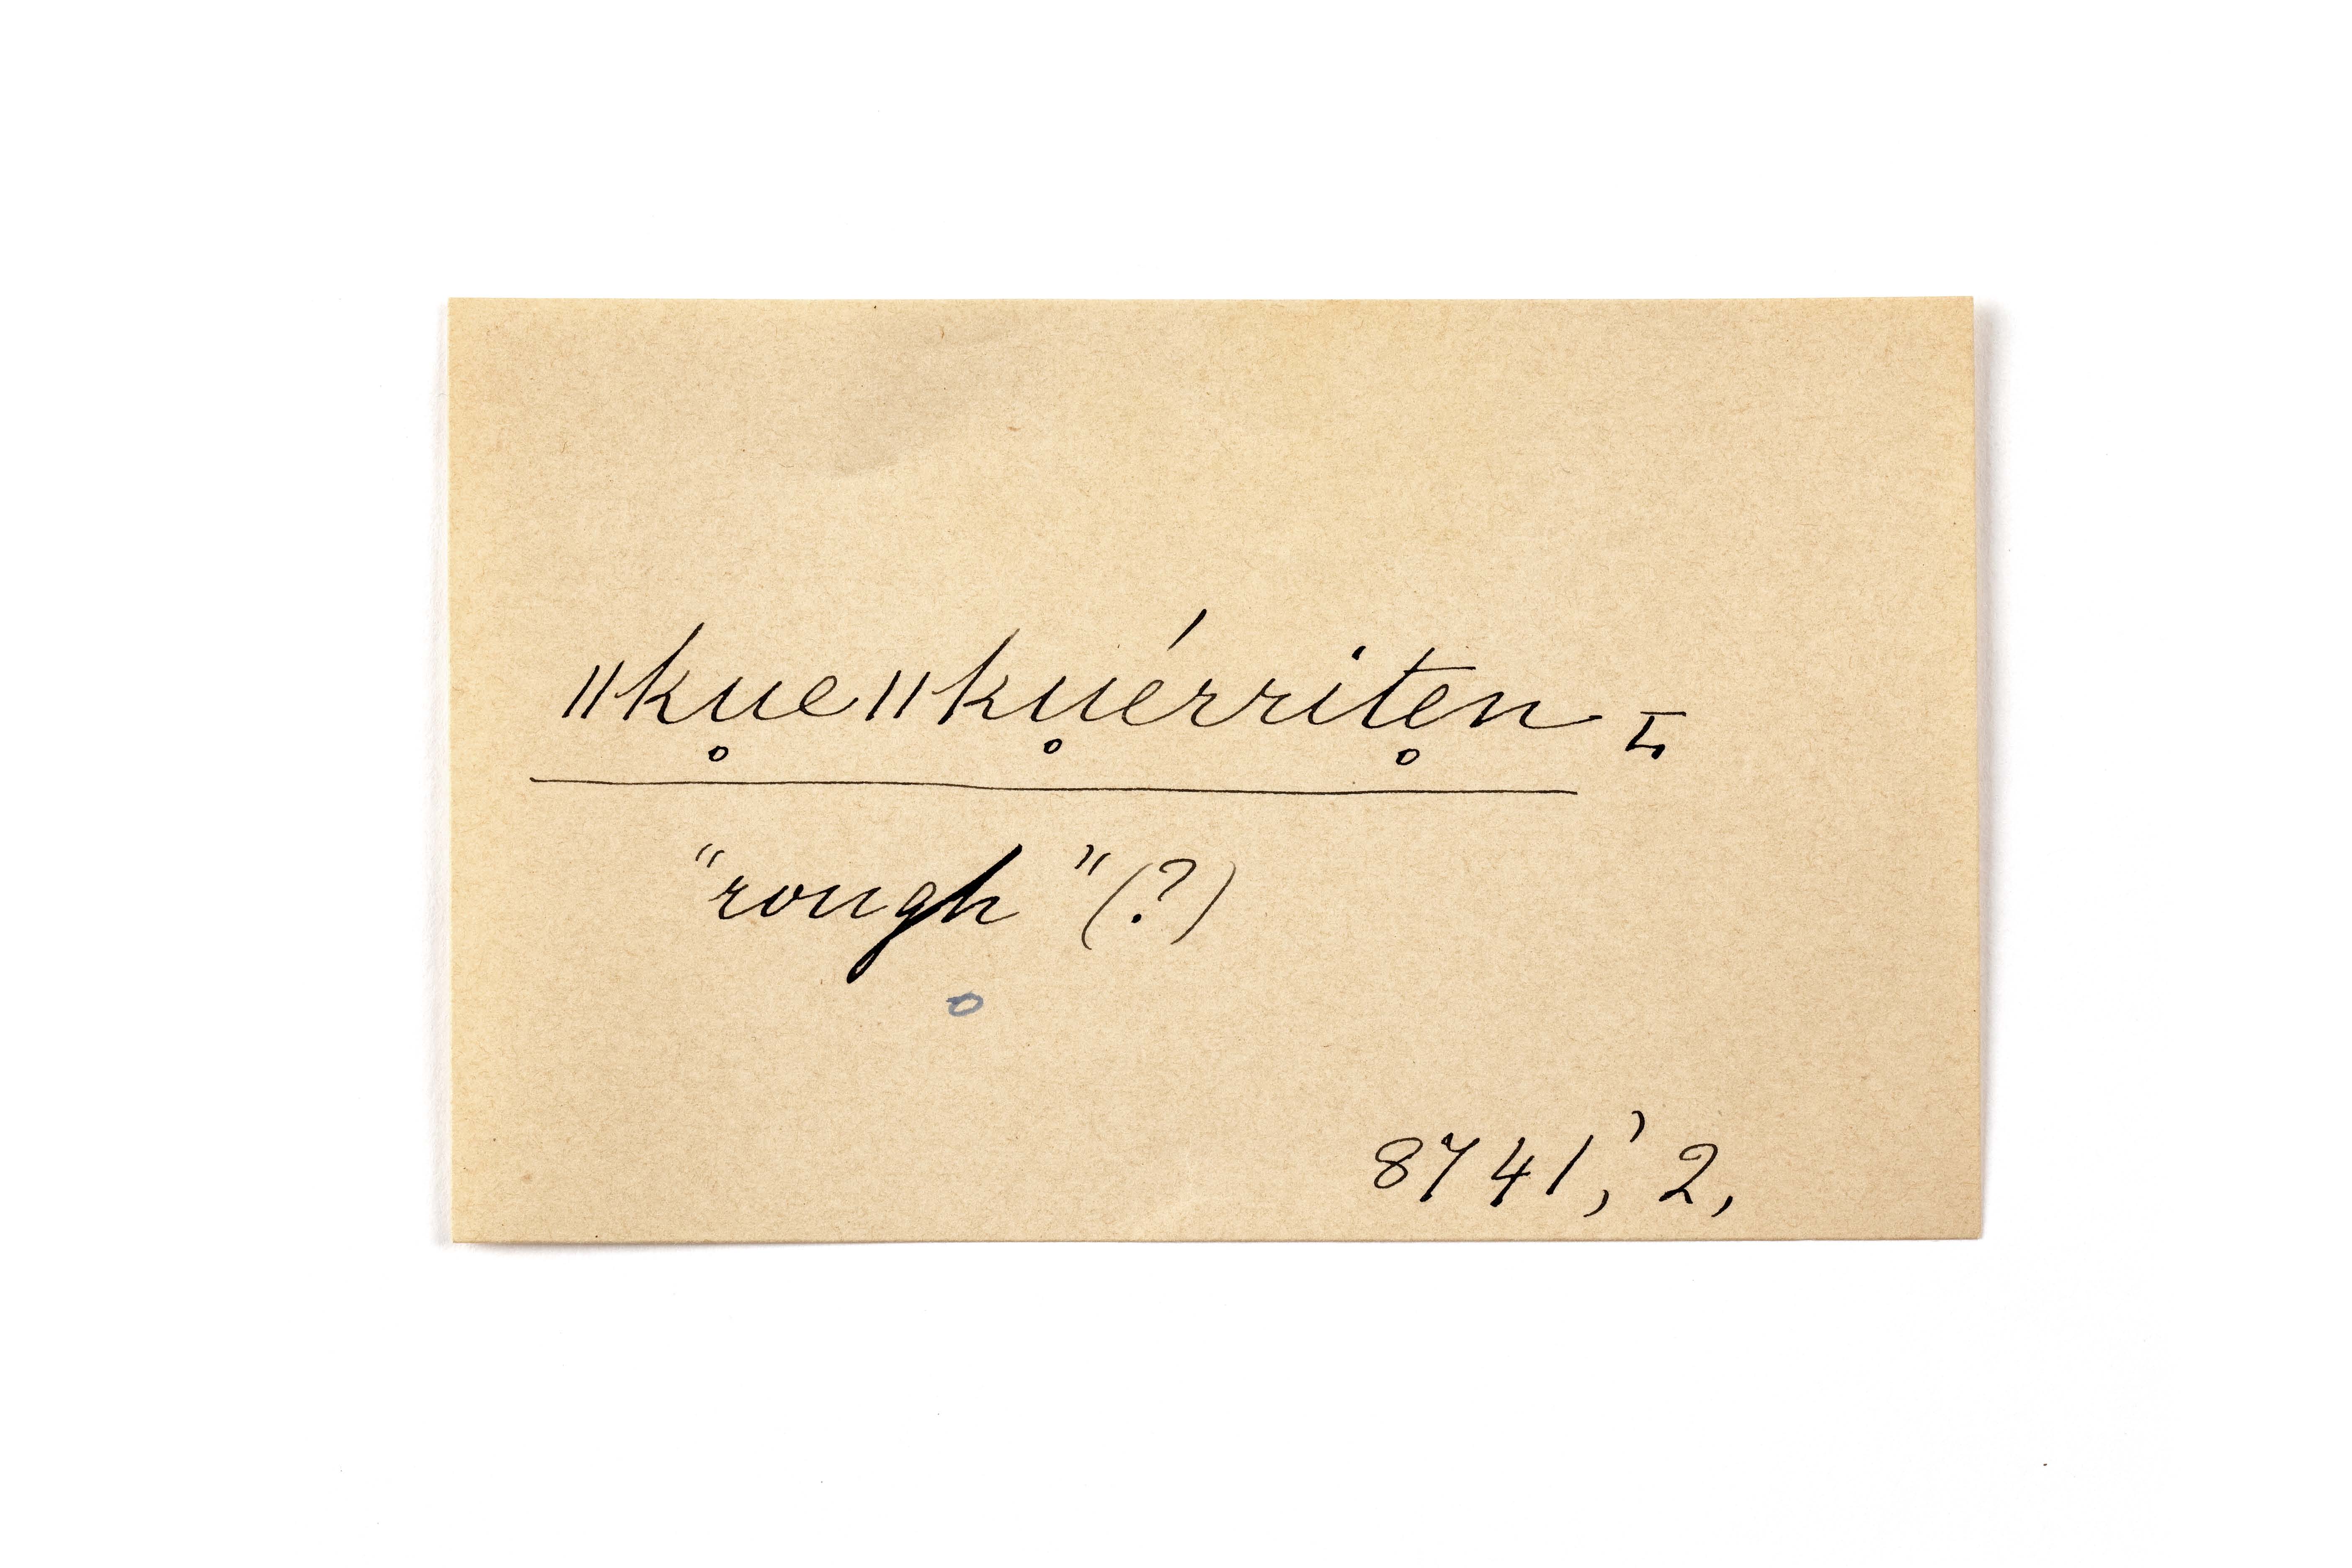 ǁku̥eǁku̥érrite̥n L.
"rough" (?)
8741,' 2,